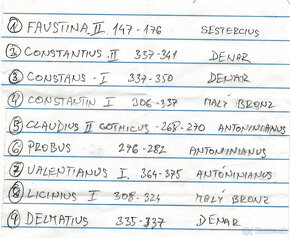 1 FAUSTINA II. 147-176 SESTERCIUS
2 CONSTANTIUS II 337-341 DENAR
3 CONSTANS - I 337-350 DENAR
4 CONSTANTIN I 306-337 MALÝ BRONZ
5 CLAUDIUS II GOTHICUS - 268-270 ANTONINIANUS
6 PROBUS 276-282 ANTONINIANUS
7 VALENTIANUS I. 364-375 ANTÓNINIANUS
8 LICINIUS I 308-324 MALÝ BRONZ
9 DELMATIUS 335-337 DENAR